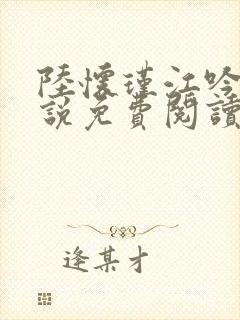 陸懷瑾江吟
說免費閱讀
逢某才